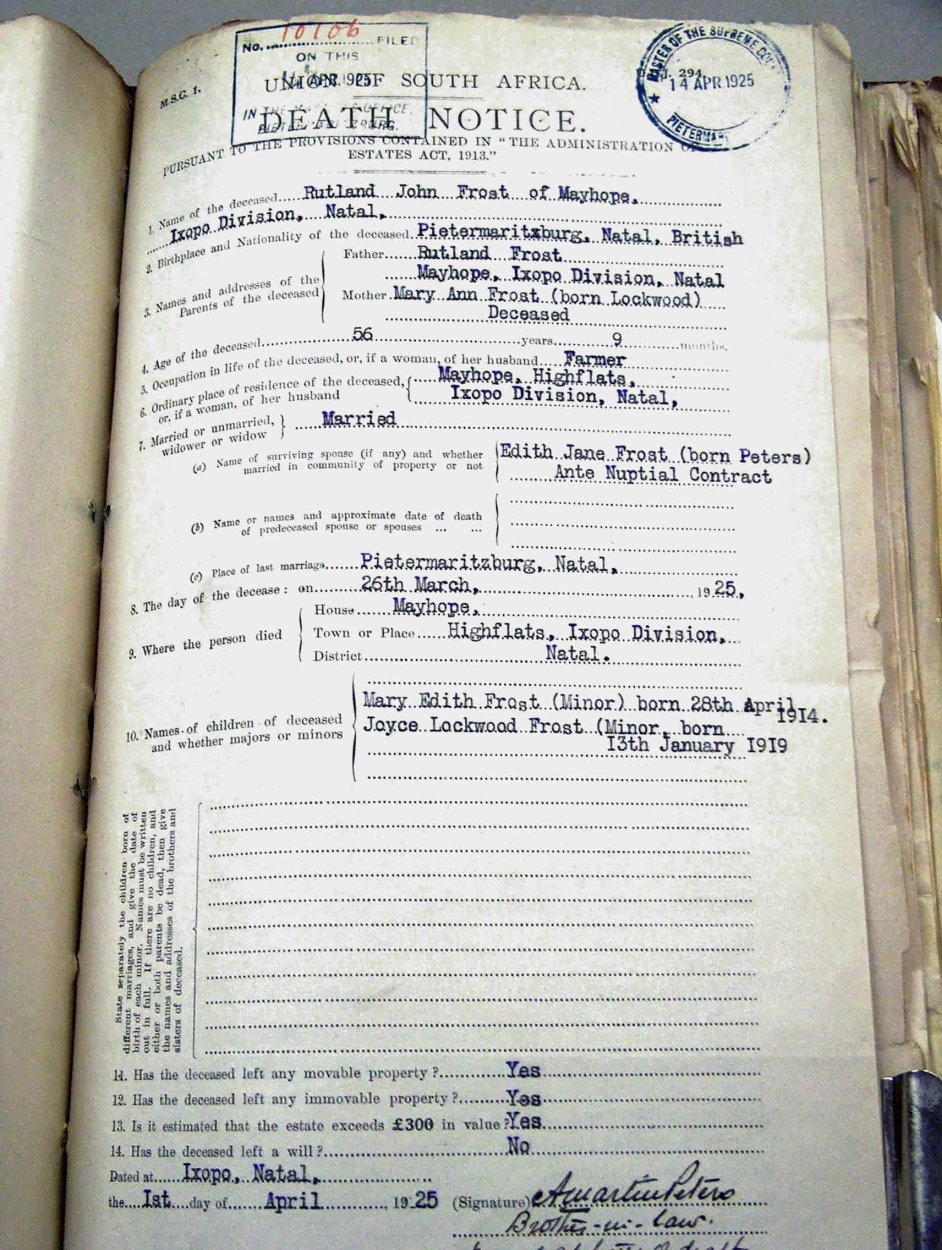 No. 10106 FILED
ON THIS
APR. 1925
IN THE MASTER'S OFFICE
M.S.C. 1.
MASTER OF THE SUPREME
294
14 APR 1925
UNION OF SOUTH AFRICA.
DEATH NOTICE.
PURSUANT TO THE PROVISIONS CONTAINED IN "THE ADMINISTRATION OF
ESTATES ACT, 1913."
1. Name of the deceased Rutland John Frost of Mayhope,
Ixopo Division, Natal,
2. Birthplace and Nationality of the deceased Pietermaritzburg, Natal, British
3. Names and addresses of the Parents of the deceased
Father Rutland Frost
Mayhope, Ixopo Division, Natal
Mother Mary Ann Frost (born Lockwood)
Deceased
4. Age of the deceased 56 years 9 months.
5. Occupation in life of the deceased, or, if a woman, of her husband Farmer
6. Ordinary place of residence of the deceased, Mayhope, Highflats,
or, if a woman, of her husband Ixopo Division, Natal,
7. Married or unmarried, Married
widower or widow
(a) Name of surviving spouse (if any) and whether Edith Jane Frost (born Peters)
married in community of property or not Ante Nuptial Contract
(b) Name or names and approximate date of death
of predeceased spouse or spouses ... ...
(c) Place of last marriage Pietermaritzburg, Natal,
8. The day of the decease: on 26th March, 1925,
9. Where the person died
House Mayhope,
Town or Place Highflats, Ixopo Division,
District Natal.
10. Names of children of deceased
and whether majors or minors
Mary Edith Frost (Minor) born 28th April
1914.
Joyce Lockwood Frost (Minor, born
13th January 1919
State separately the children born of
different marriages, and give the date of
birth of each minor. Names must be written
out in full. If there are no children, and
either or both parents be dead, then give
the names and addresses of the brothers and
sisters of deceased.
11. Has the deceased left any movable property? Yes
12. Has the deceased left any immovable property? Yes
13. Is it estimated that the estate exceeds £300 in value? Yes
14. Has the deceased left a will? No
Dated at Ixopo, Natal,
the Ist day of April 1925 (Signature) A Martin Peters
Brother-in-law.